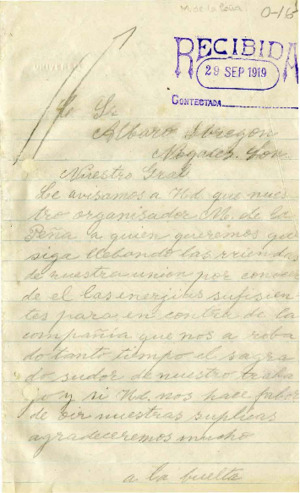 M. de la Peña
0-16
RECIBIDA
29 SEP 1919
CONTESTADA
S. Sr.
Albaro Obregon
Nogales Son.
Nuestro Gral
Le avisamos a Ud. que nues
tro organisador M. de la
Peña a quien querémos que
siga llebondo las rriendas
de nuestra union por conocer
de el las enerjias sufisien
tes para en contra de la
compañia que nos a roba
do tanto tiempo el sagra
do sudor de nuestro traba
jo y si Ud. nos hace fabor
de oir nuestras suplicas
agradeceremos mucho
a la buelta